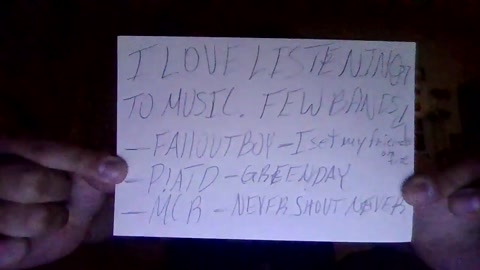 I LOVE LISTENING
TO MUSIC. FEW BANDS
- FALLOUTBOY - I set my friends on fire
- P!ATD - GREENDAY
- MCR - NEVERSHOUTNEVER